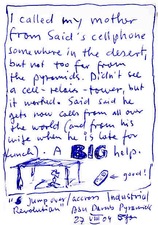 I called my mother
from Said's cellphone
somewhere in the desert,
but not too far from
the pyramids. Didn't see
a cell-relais-tower, but
it worked. Said said he
gets now calls from all over
the world (and from his
wife when he is late for
lunch). A BIG help.
← good!
"Jump over / across Industrial
Revolution"
Pyramids
27 VIII 09